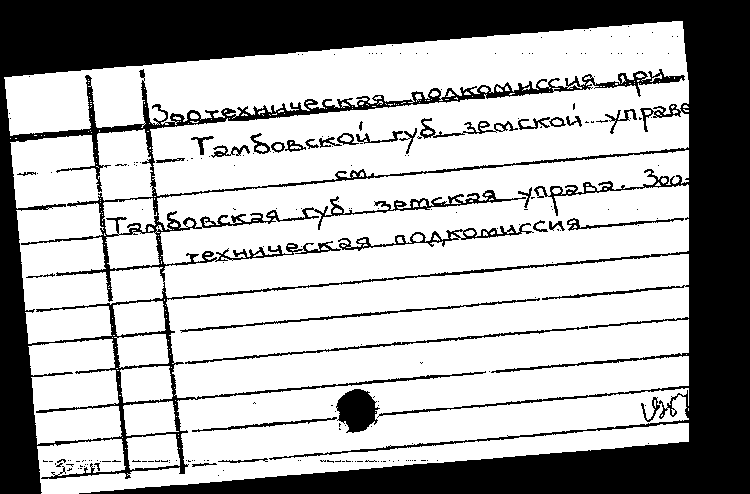 Зоотехническая подкомиссия при
Тамбовской губ. земской управе
см.
Тамбовская губ. земская управа. Зоо-
техническая подкомиссия.